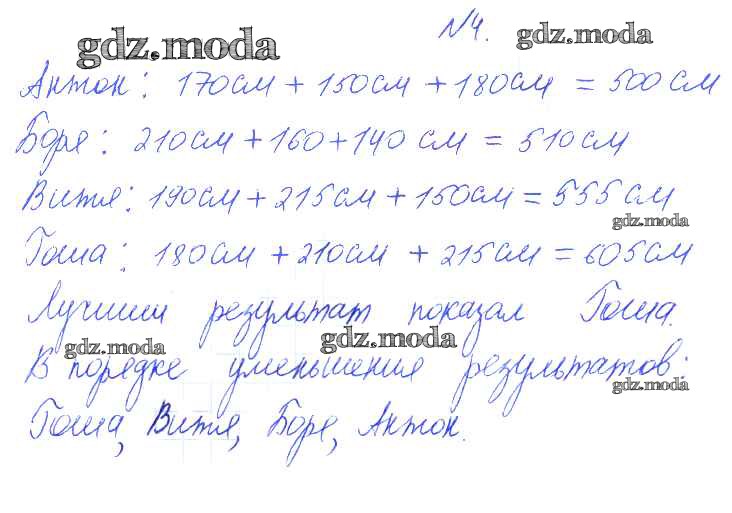 gdz.moda №4. gdz.moda
Антон: 170см + 150см + 180см = 500см
Боря: 210см + 160 + 140 см = 510см
Витя: 190см + 215см + 150см = 555см
gdz.moda
Гоша: 180см + 210см + 215см = 605см
Лучший результат показал Гоша.
gdz.moda gdz.moda
В порядке уменьшения результатов:
gdz.moda
Гоша, Витя, Боря, Антон.